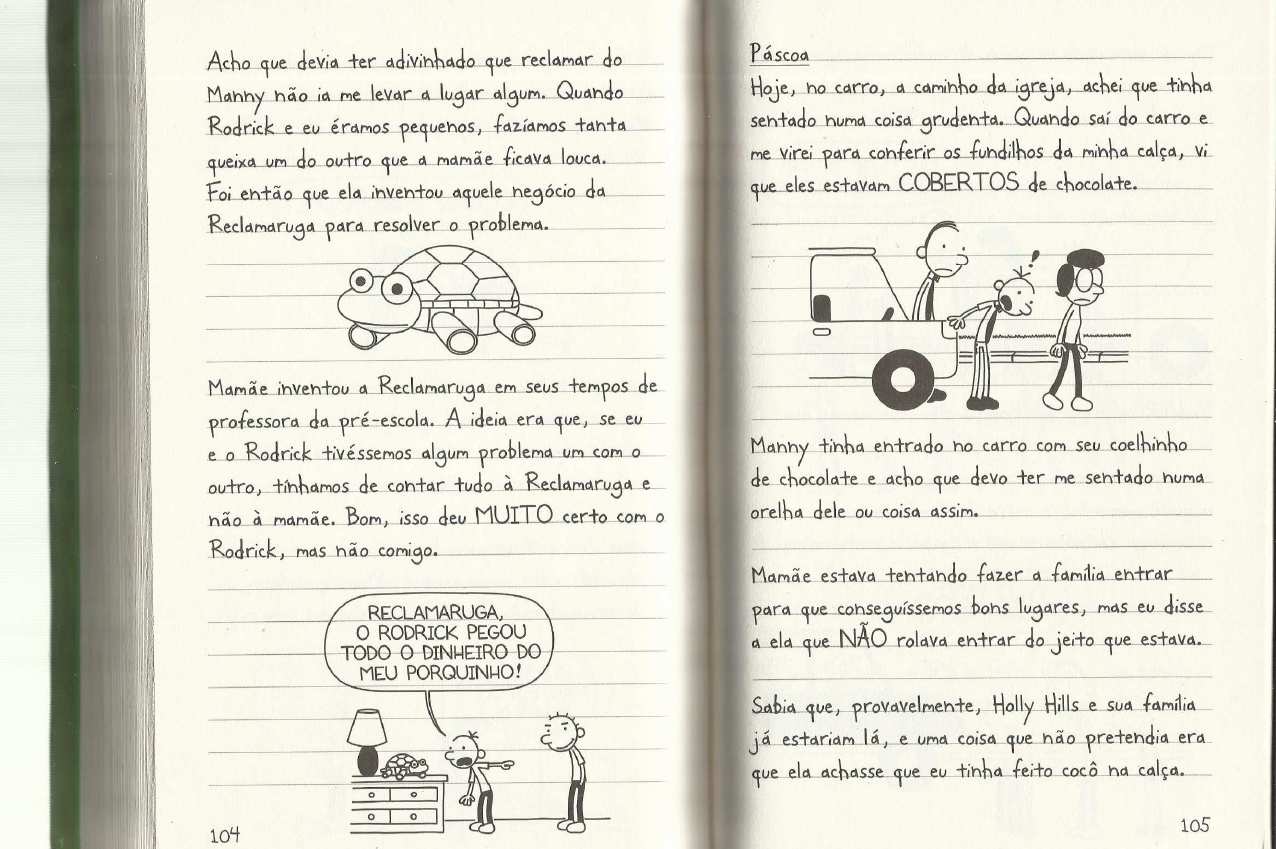 Acho que devia ter adivinhado que reclamar do
Manny não ia me levar a lugar algum. Quando
Rodrick e eu éramos pequenos, fazíamos tanta
queixa um do outro que a mamãe ficava louca.
Foi então que ela inventou aquele negócio da
Reclamaruga para resolver o problema.
Mamãe inventou a Reclamaruga em seus tempos de
professora da pré-escola. A ideia era que, se eu
e o Rodrick tivéssemos algum problema um com o
outro, tínhamos de contar tudo à Reclamaruga e
não à mamãe. Bom, isso deu MUITO certo com o
Rodrick, mas não comigo.
RECLAMARUGA,
O RODRICK PEGOU
TODO O DINHEIRO DO
MEU PORQUINHO!
104
Páscoa
Hoje, no carro, a caminho da igreja, achei que tinha
sentado numa coisa grudenta. Quando saí do carro e
me virei para conferir os fundilhos da minha calça, vi
que eles estavam COBERTOS de chocolate.
!
Manny tinha entrado no carro com seu coelhinho
de chocolate e acho que devo ter me sentado numa
orelha dele ou coisa assim.
Mamãe estava tentando fazer a família entrar
para que conseguíssemos bons lugares, mas eu disse
a ela que NÃO rolava entrar do jeito que estava.
Sabia que, provavelmente, Holly Hills e sua família
já estariam lá, e uma coisa que não pretendia era
que ela achasse que eu tinha feito cocô na calça.
105